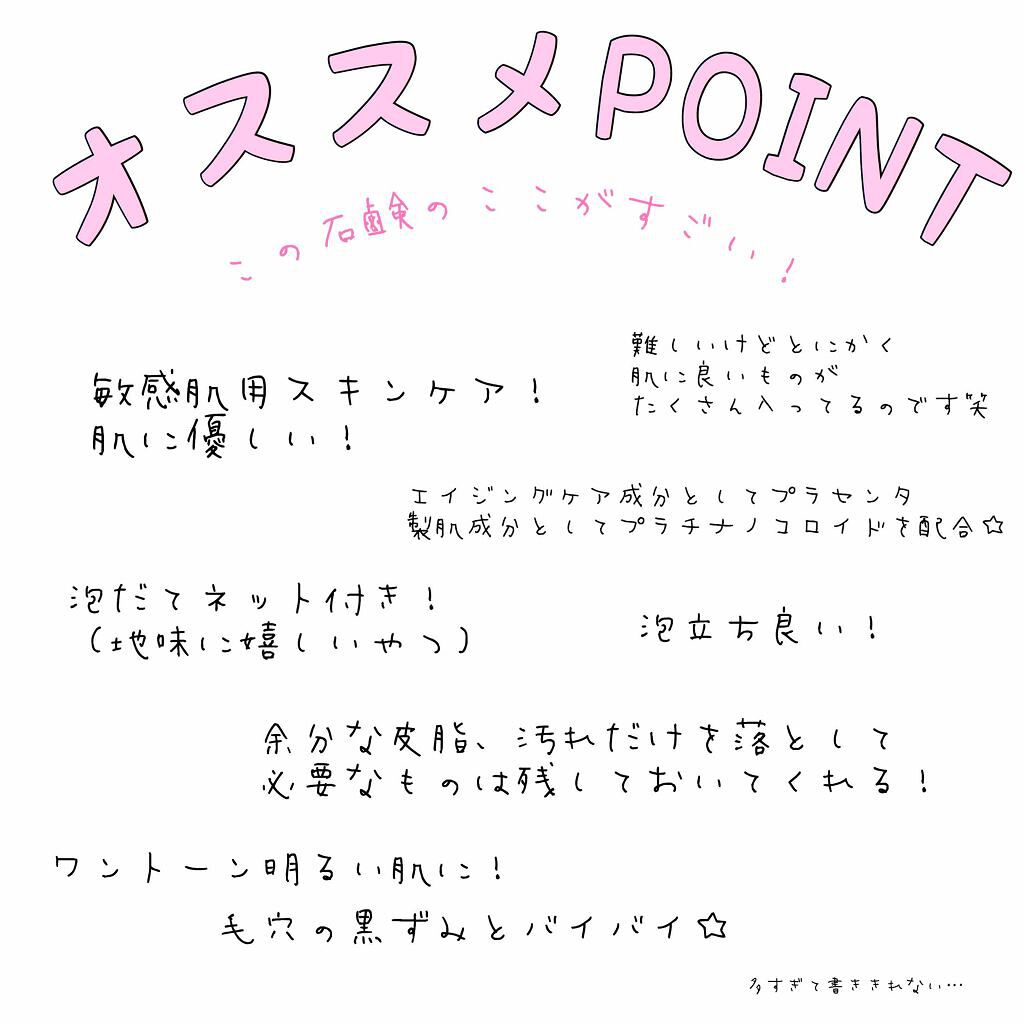 オススメPOINT
この石鹸のここがすごい！
難しいけどとにかく
肌に良いものが
たくさん入ってるのです笑
敏感肌用スキンケア！
肌に優しい！
エイジングケア成分としてプラセンタ
製肌成分としてプラチナノコロイドを配合☆
泡だてネット付き！
（地味に嬉しいやつ）
泡立ち良い！
余分な皮脂、汚れだけを落として
必要なものは残しておいてくれる！
ワントーン明るい肌に！
毛穴の黒ずみとバイバイ☆
多すぎて書ききれない…